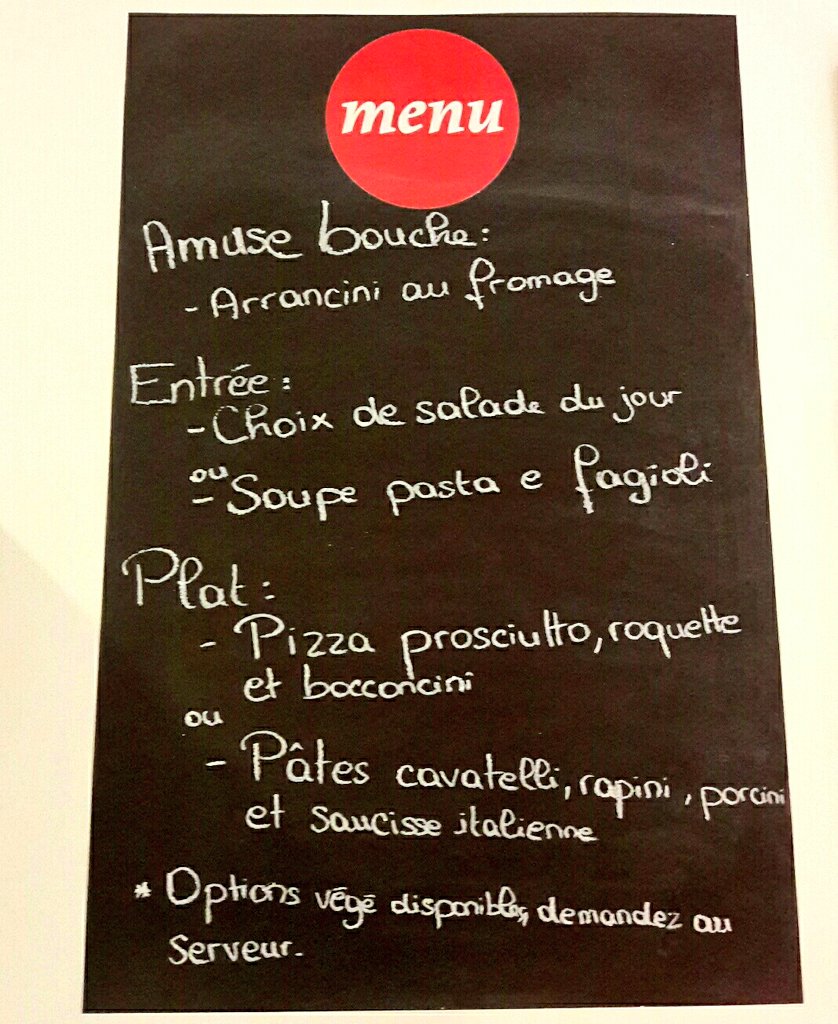 menu
Amuse bouche:
- Arrancini au fromage
Entrée:
- Choix de salade du jour
ou
- Soupe pasta e fagioli
Plat:
- Pizza prosciutto, roquette
et bocconcini
ou
- Pâtes cavatelli, rapini, porcini
et saucisse italienne
* Options végé disponibles, demandez au
serveur.